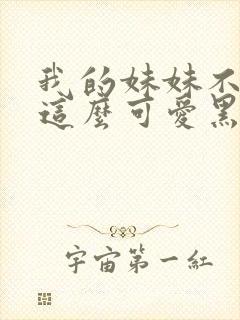 我的妹妹不
這麼可愛黑
宇宙第一紅